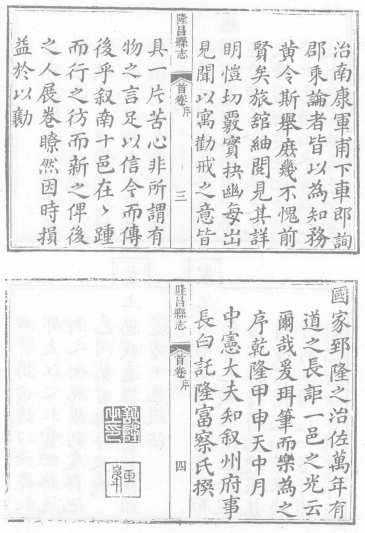 治南康軍甫下車即詢
郡乘論者皆以為知務
黄令斯舉庶幾不愧前
賢矣旅舘紬閱見其詳
明愷切覈實抉幽每出
見聞以寓勸戒之意皆
隆昌縣志
首卷 序
三
具一片苦心非所謂有
物之言足以信今而傳
後乎叙南十邑在〻踵
而行之彷而新之俾後
之人展卷瞭然因時損
益於以勷
國家郅隆之治佐萬年有
道之長詎一邑之光云
爾哉爰珥筆而樂為之
序乾隆甲申天中月
中憲大夫知叙州府事
長白託隆富察氏撰
隆昌縣志
首卷 序
四